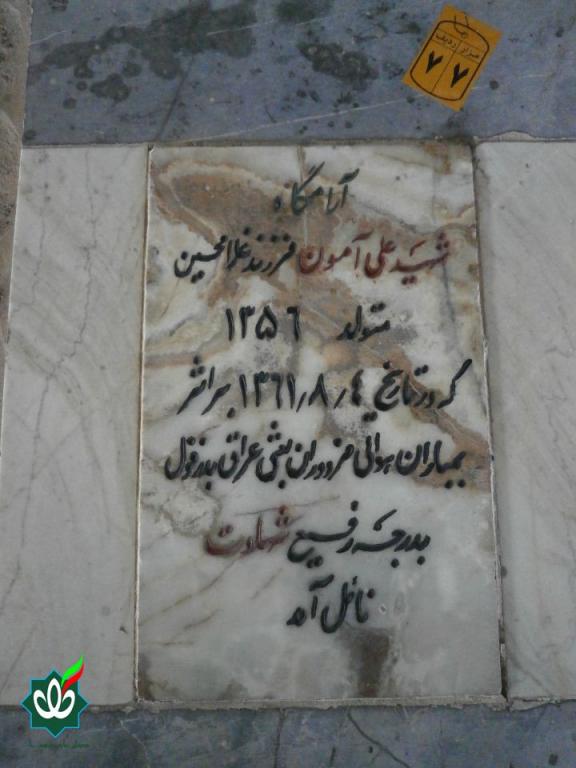 مزار ردیف
۷ ۷
آرامگاه
شهید علی آمون فرزند غلامحسین
متولد ۱۳۵۶
که در تاریخ ۴ر۸ر۱۳۶۱ بر اثر
بمباران هوائی مزدوران بعثی عراق بدزفول
بدرجه رفیع شهادت
نائل آمد